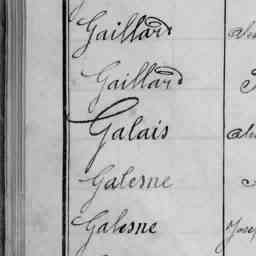 Gaillard
Gaillard
Galais
Galesne
Galesne